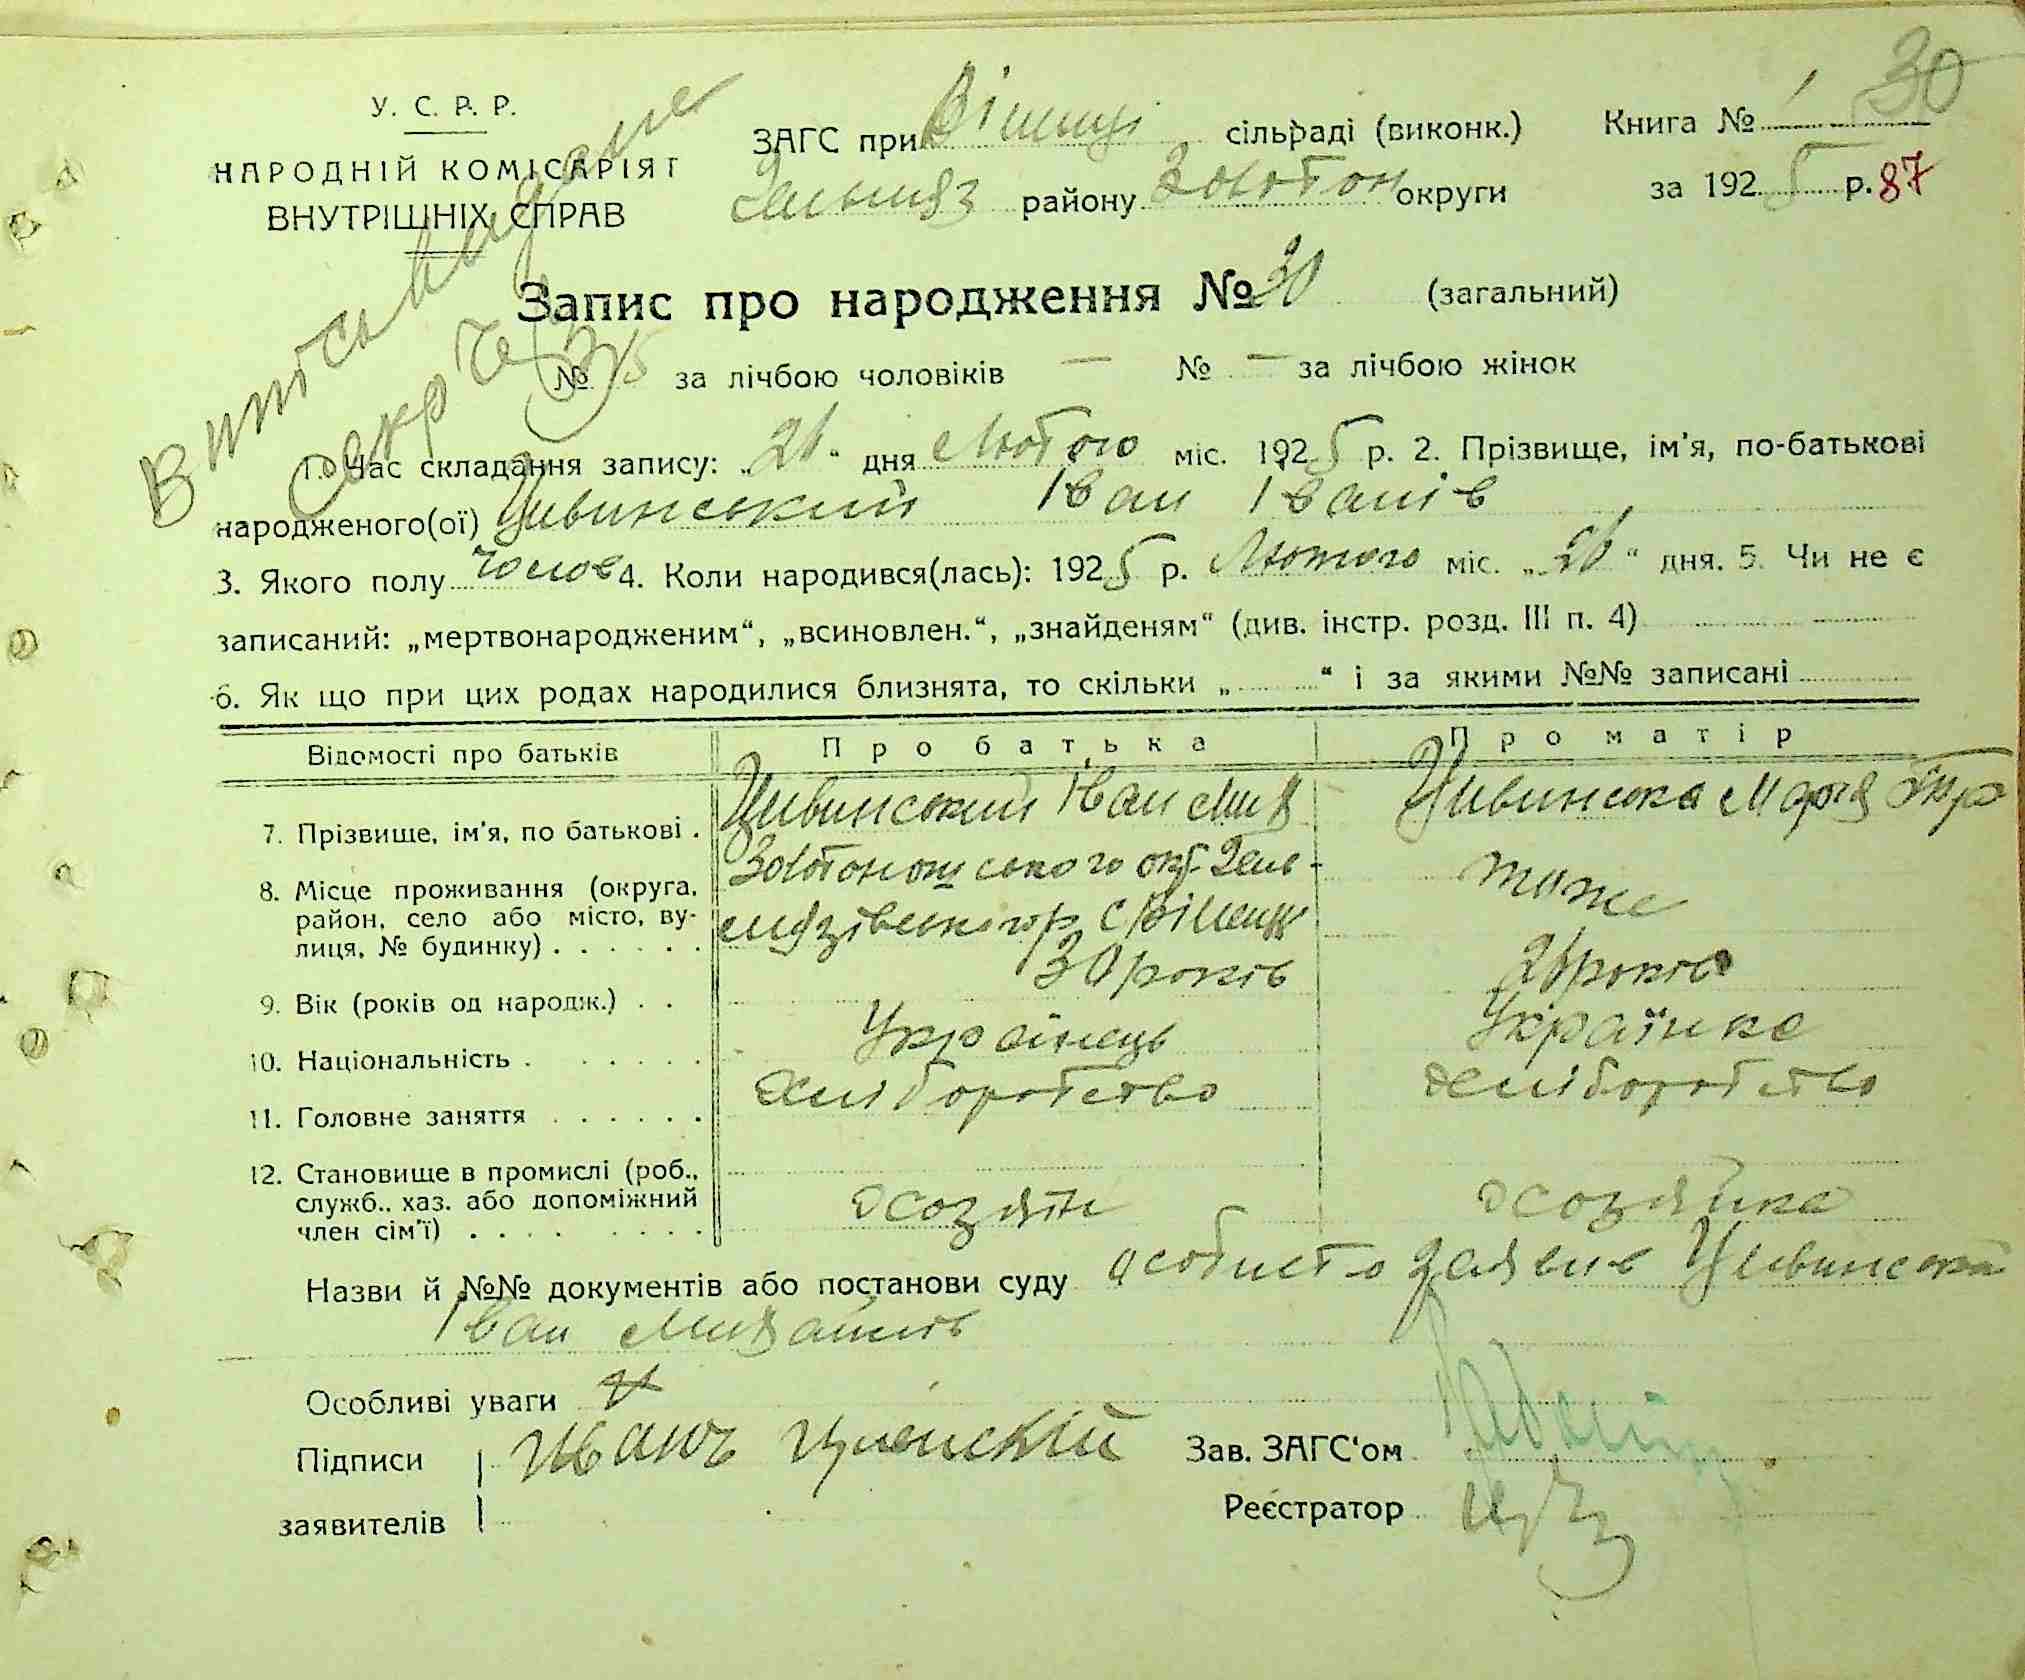 30
У. С. Р. Р.
НАРОДНІЙ КОМІСАРІЯТ
ВНУТРІШНІХ СПРАВ
ЗАГС при сільраді (виконк.)
району Золотон округи
Книга № 1
за 1925 р. 87
Запис про народження № 30 (загальний)
№ 15 за лічбою чоловіків — № — за лічбою жінок
1. Час складання запису: „26“ дня Лютого міс. 1925 р. 2. Прізвище, ім'я, по-батькові
народженого(ої) Цивинський Іван Іванів
3. Якого полу чолов 4. Коли народився(лась): 1925 р. Лютого міс. „26“ дня. 5. Чи не є
записаний: „мертвонародженим“, „всиновлен.“, „знайденям“ (див. інстр. розд. III п. 4)
6. Як що при цих родах народилися близнята, то скільки „ “ і за якими №№ записані
Відомості про батьків Про батька Про матір
7. Прізвище, ім'я, по батькові . Цивинський Іван Мих Цивинська Марія
8. Місце проживання (округа, район, село або місто, вулиця, № будинку) Золотоношського окр. тоже
9. Вік (років од народж.) . . 30 років 26 років
10. Національність . Українець Українка
11. Головне заняття хліборобство хліборобство
12. Становище в промислі (роб., служб., хаз. або допоміжний член сім'ї) хозяін хозяйка
Назви й №№ документів або постанови суду особисто заявив Цивинський
Іван Михайлів
Особливі уваги
Підписи
заявителів
Иванъ
Зав. ЗАГС'ом
Реєстратор